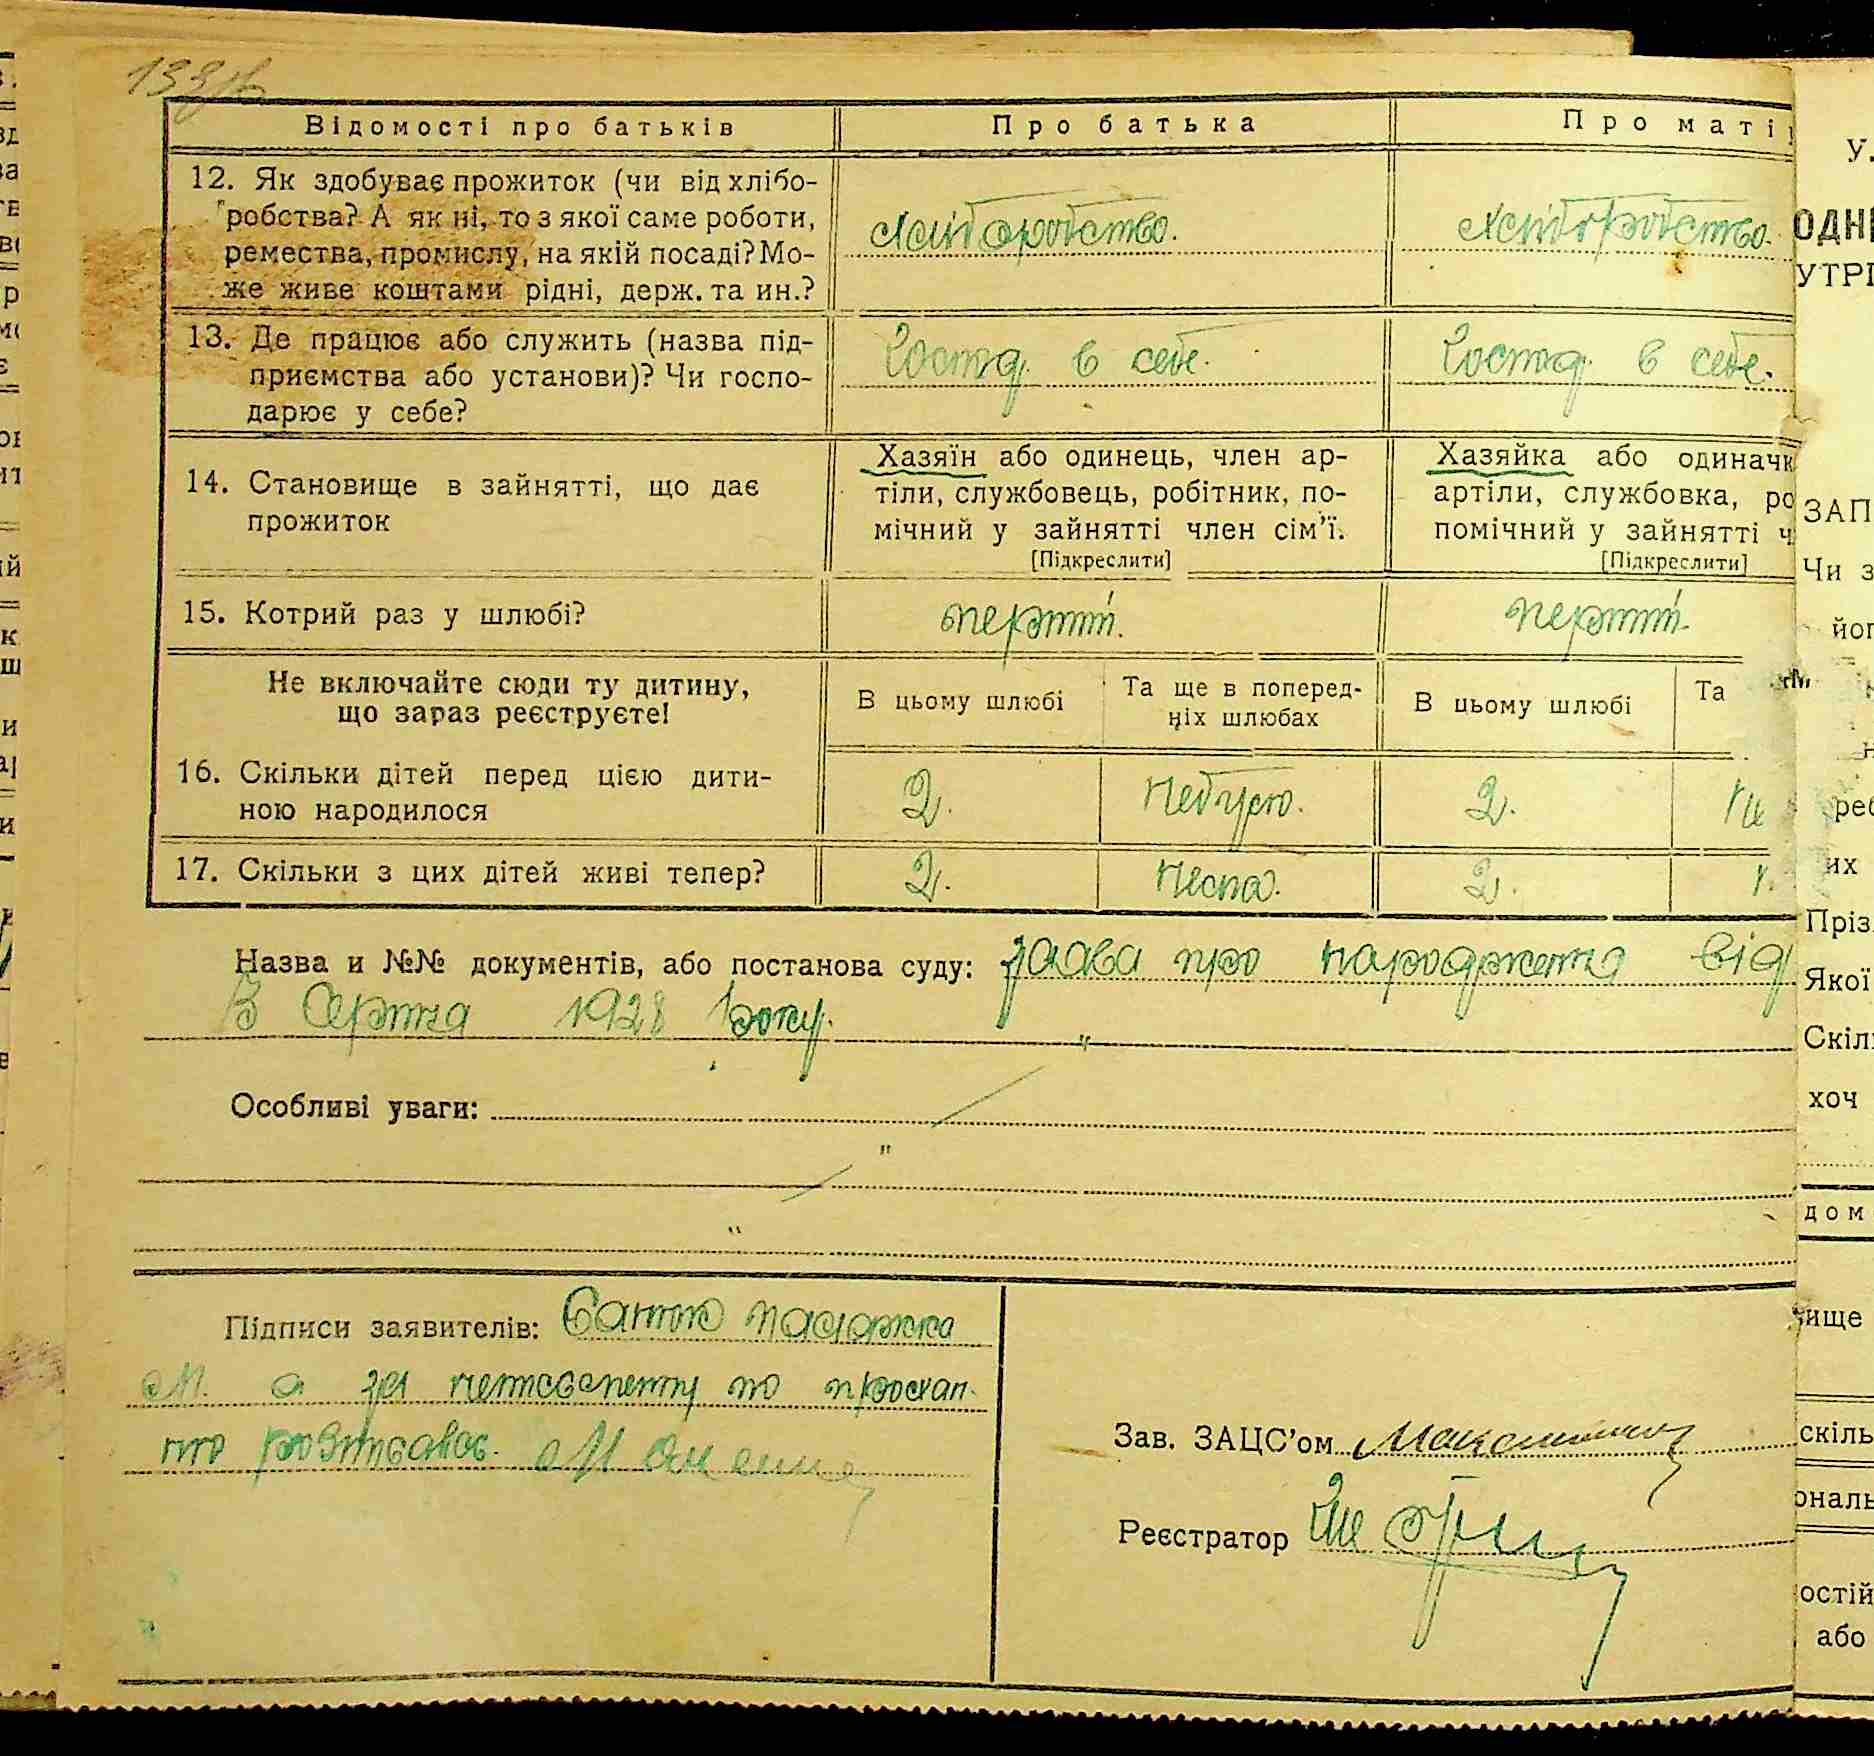 Відомості про батьків
Про батька
Про маті
12. Як здобуває прожиток (чи від хлібо-
робства? А як ні, то з якої саме роботи,
ремества, промислу, на якій посаді? Мо-
же живе коштами рідні, держ. та ин.?
хліборобство.
хліборобство.
13. Де працює або служить (назва під-
приємства або установи)? Чи госпо-
дарює у себе?
Господ. в себе.
Господ. в себе.
14. Становище в зайнятті, що дає
прожиток
Хазяїн або одинець, член ар-
тіли, службовець, робітник, по-
мічний у зайнятті член сім'ї.
[Підкреслити]
Хазяйка або одиначк
артіли, службовка, ро
помічний у зайнятті ч
[Підкреслити]
15. Котрий раз у шлюбі?
перший.
перший.
Не включайте сюди ту дитину,
що зараз реєструєте!
В цьому шлюбі
Та ще в поперед-
ніх шлюбах
В цьому шлюбі
Та
16. Скільки дітей перед цією дити-
ною народилося
2.
Небуло.
2.
Не
17. Скільки з цих дітей живі тепер?
2.
Нема.
2.
Н
Назва и №№ документів, або постанова суду: заява про народження від
Серпня 1928 року.
Особливі уваги:
Підписи заявителів: Батько
М. а за
розписався.
Зав. ЗАЦС'ом
Реєстратор
У.
ОДН
УТРІ
ЗАП
Чи з
йог
реб
их
Пріз
Якої
Скіл
хоч
дом
ище
скіль
ональ
остій
або